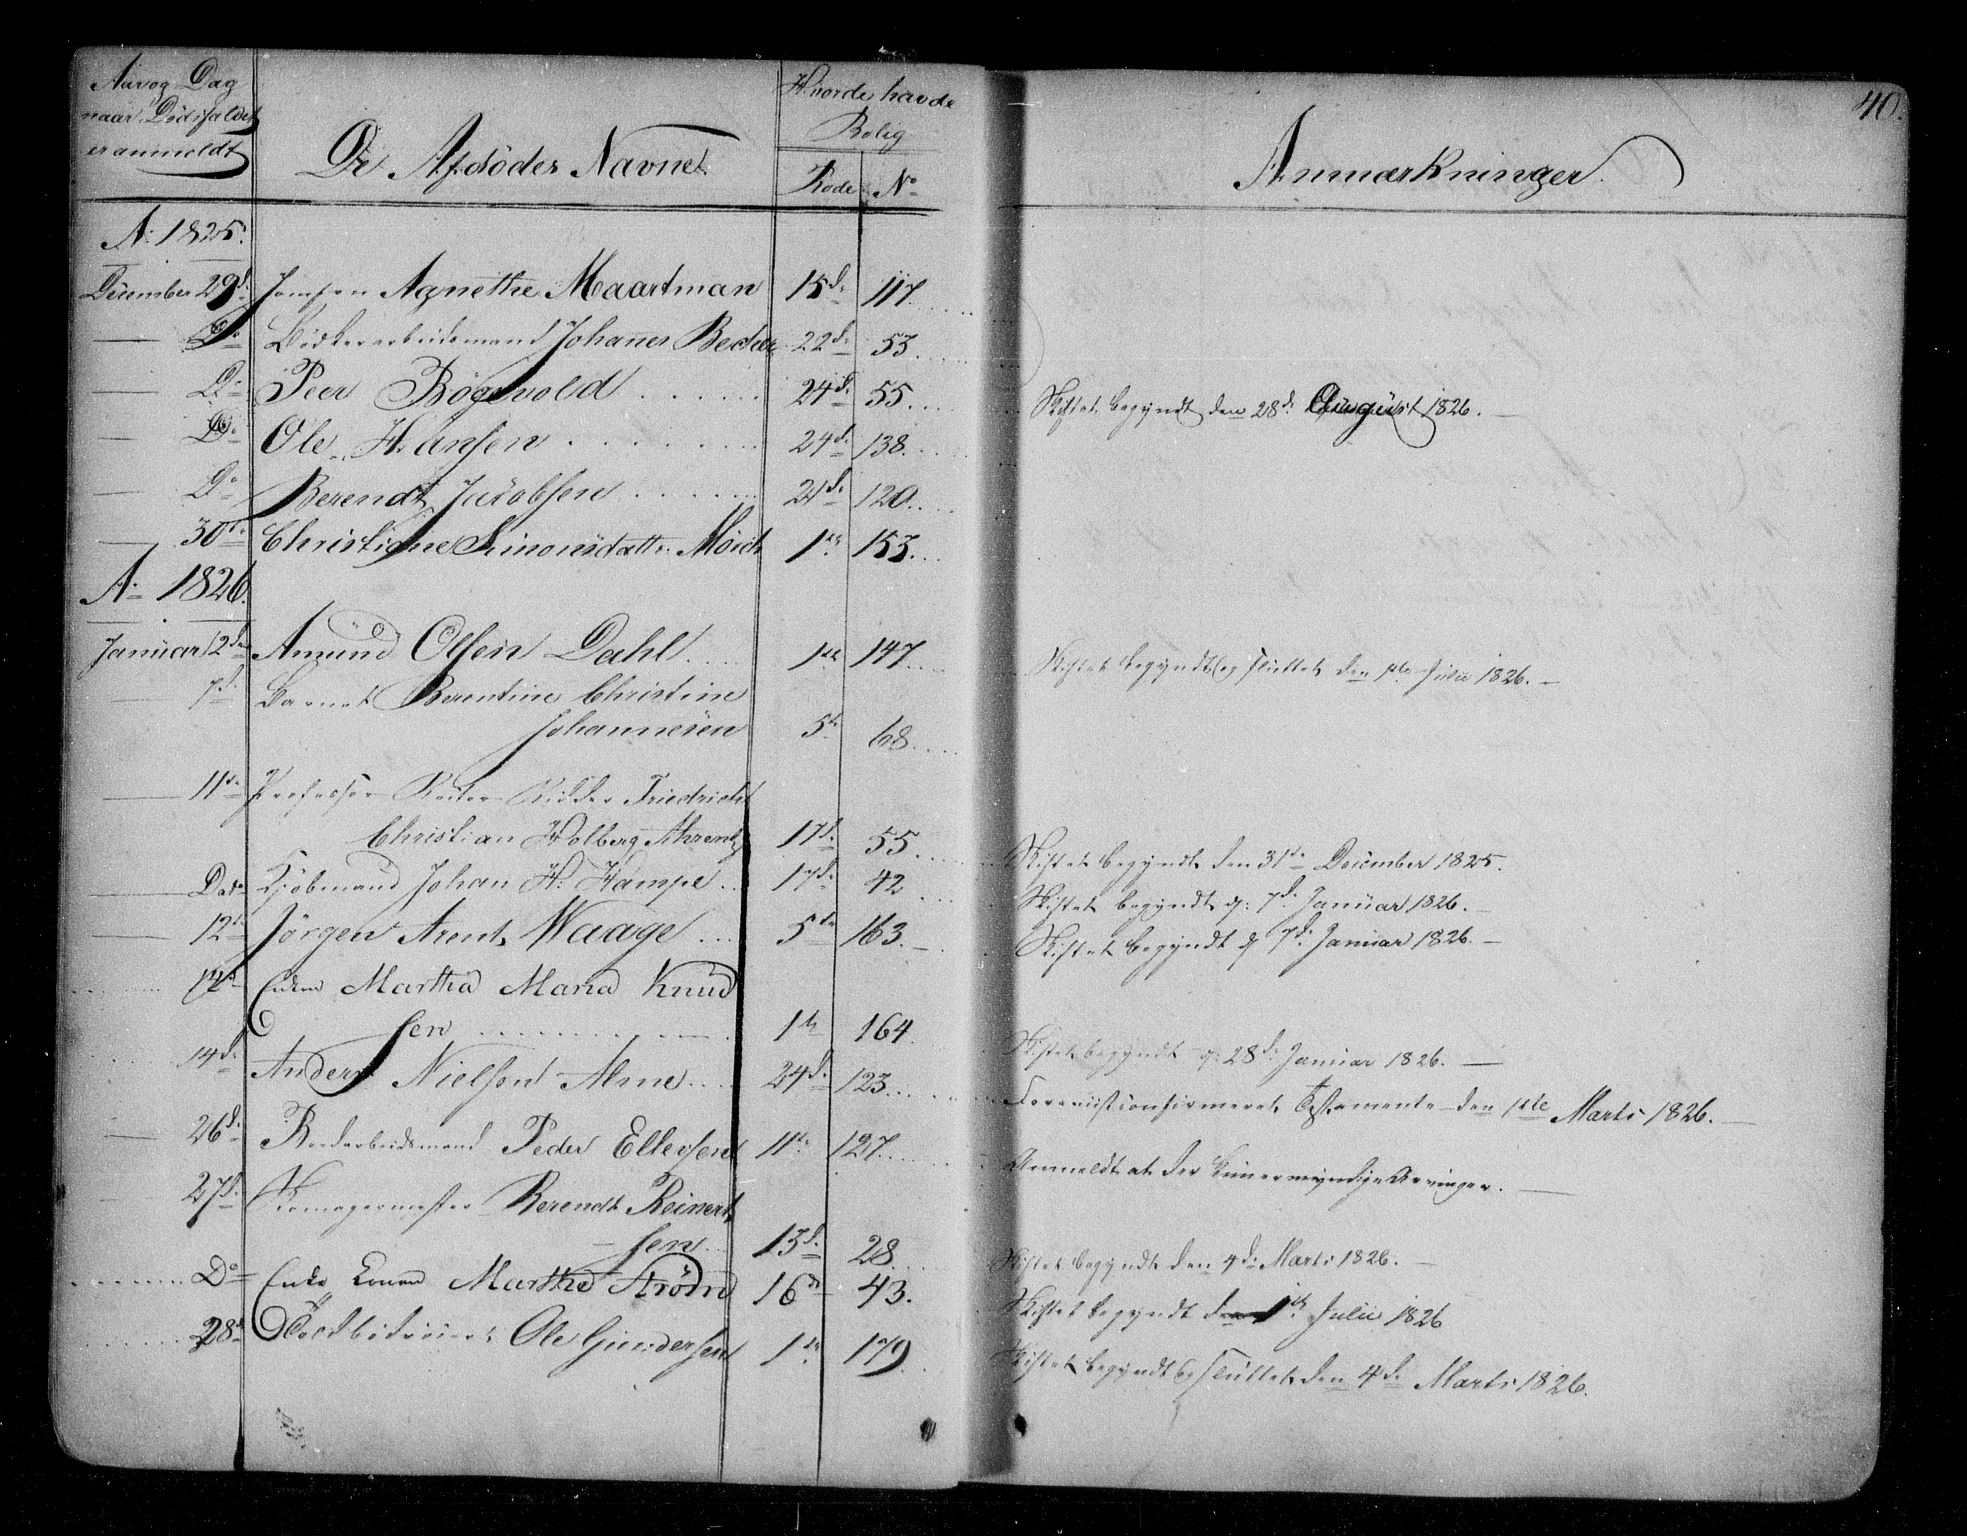 40.
Aar og Dag
naar Dödsfaldet
er anmeldt
De Afdödes Navne.
Hvor de havde
Bolig
Rode No
Anmærkninger.
Ao 1825.
December 29de Jomfru Agnethe Maartman 15de 117.
Do Bödkerarbeidsmand Johannes Becker 22de 53
Do Peer Rögevold 24de 55. Skiftet begyndt den 28de August 1826.
Do Ole Hansen 24de 138.
Do Berendt Jacobsen 21de 120.
30te Christiane Simonsdatter Mörch 1ste 153.
Ao 1826.
Januar 2den Amund Olsen Dahl 1ste 147 Skiftet begyndt og sluttet den 1ste Julii 1826.
7de Barnet Berentine Christine
Johannesen 5te 68.
11te Professor Ridder Friedrich
Christian Holberg Ahrentz 17de 55 Skiftet begyndt den 31te December 1825.
Dato Kjöbmand Johan H. Kampe 17de 42 Skiftet begyndt d: 7de Januar 1826.
12te Jörgen Arentz Waage 5te 163. Skiftet begyndt d 7de Januar 1826.
14de Enken Martha Maria Knud
sen 1ste 164 Skiftet begyndt d: 28de Januar 1826.
14de Anders Nielsen Alme 24de 123 Foreviist confirmeret Testamente den 1ste Marts 1826.
26de Bordarbeidsmand Peder Ellersen 11te 127. Anmeldt at der umyndige Arvinger.
27de Skomagermester Berendt Reinert
sen 13de 28 Skiftet begyndt den 4de Marts 1826.
Do Enke Konen Martha Ström 16de 43. Skiftet begyndt den 1ste Julii 1826
28de Ole Gundersen 1ste 179 Skiftet begyndt og sluttet den 4de Marts 1826.